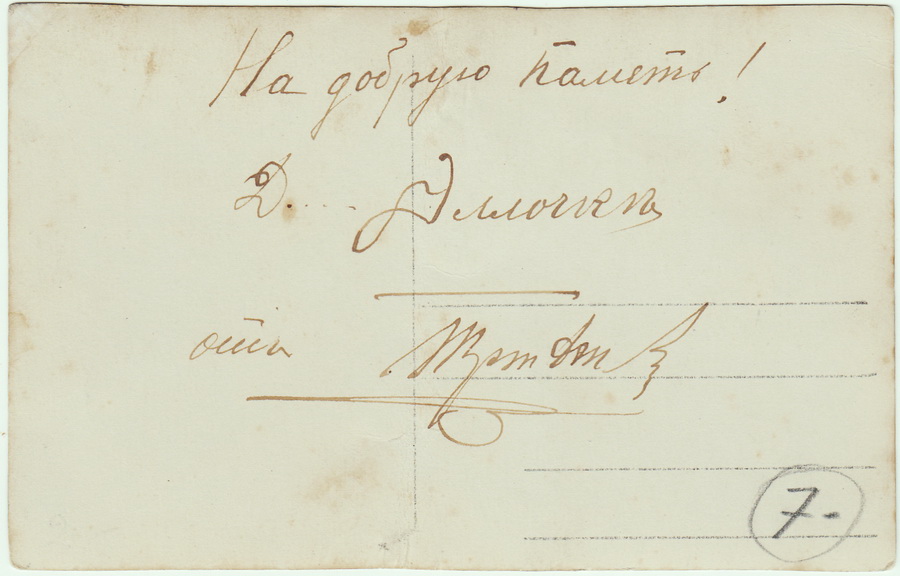 На добрую паметь!
Д. .... Эллочкѣ
отъ
7-